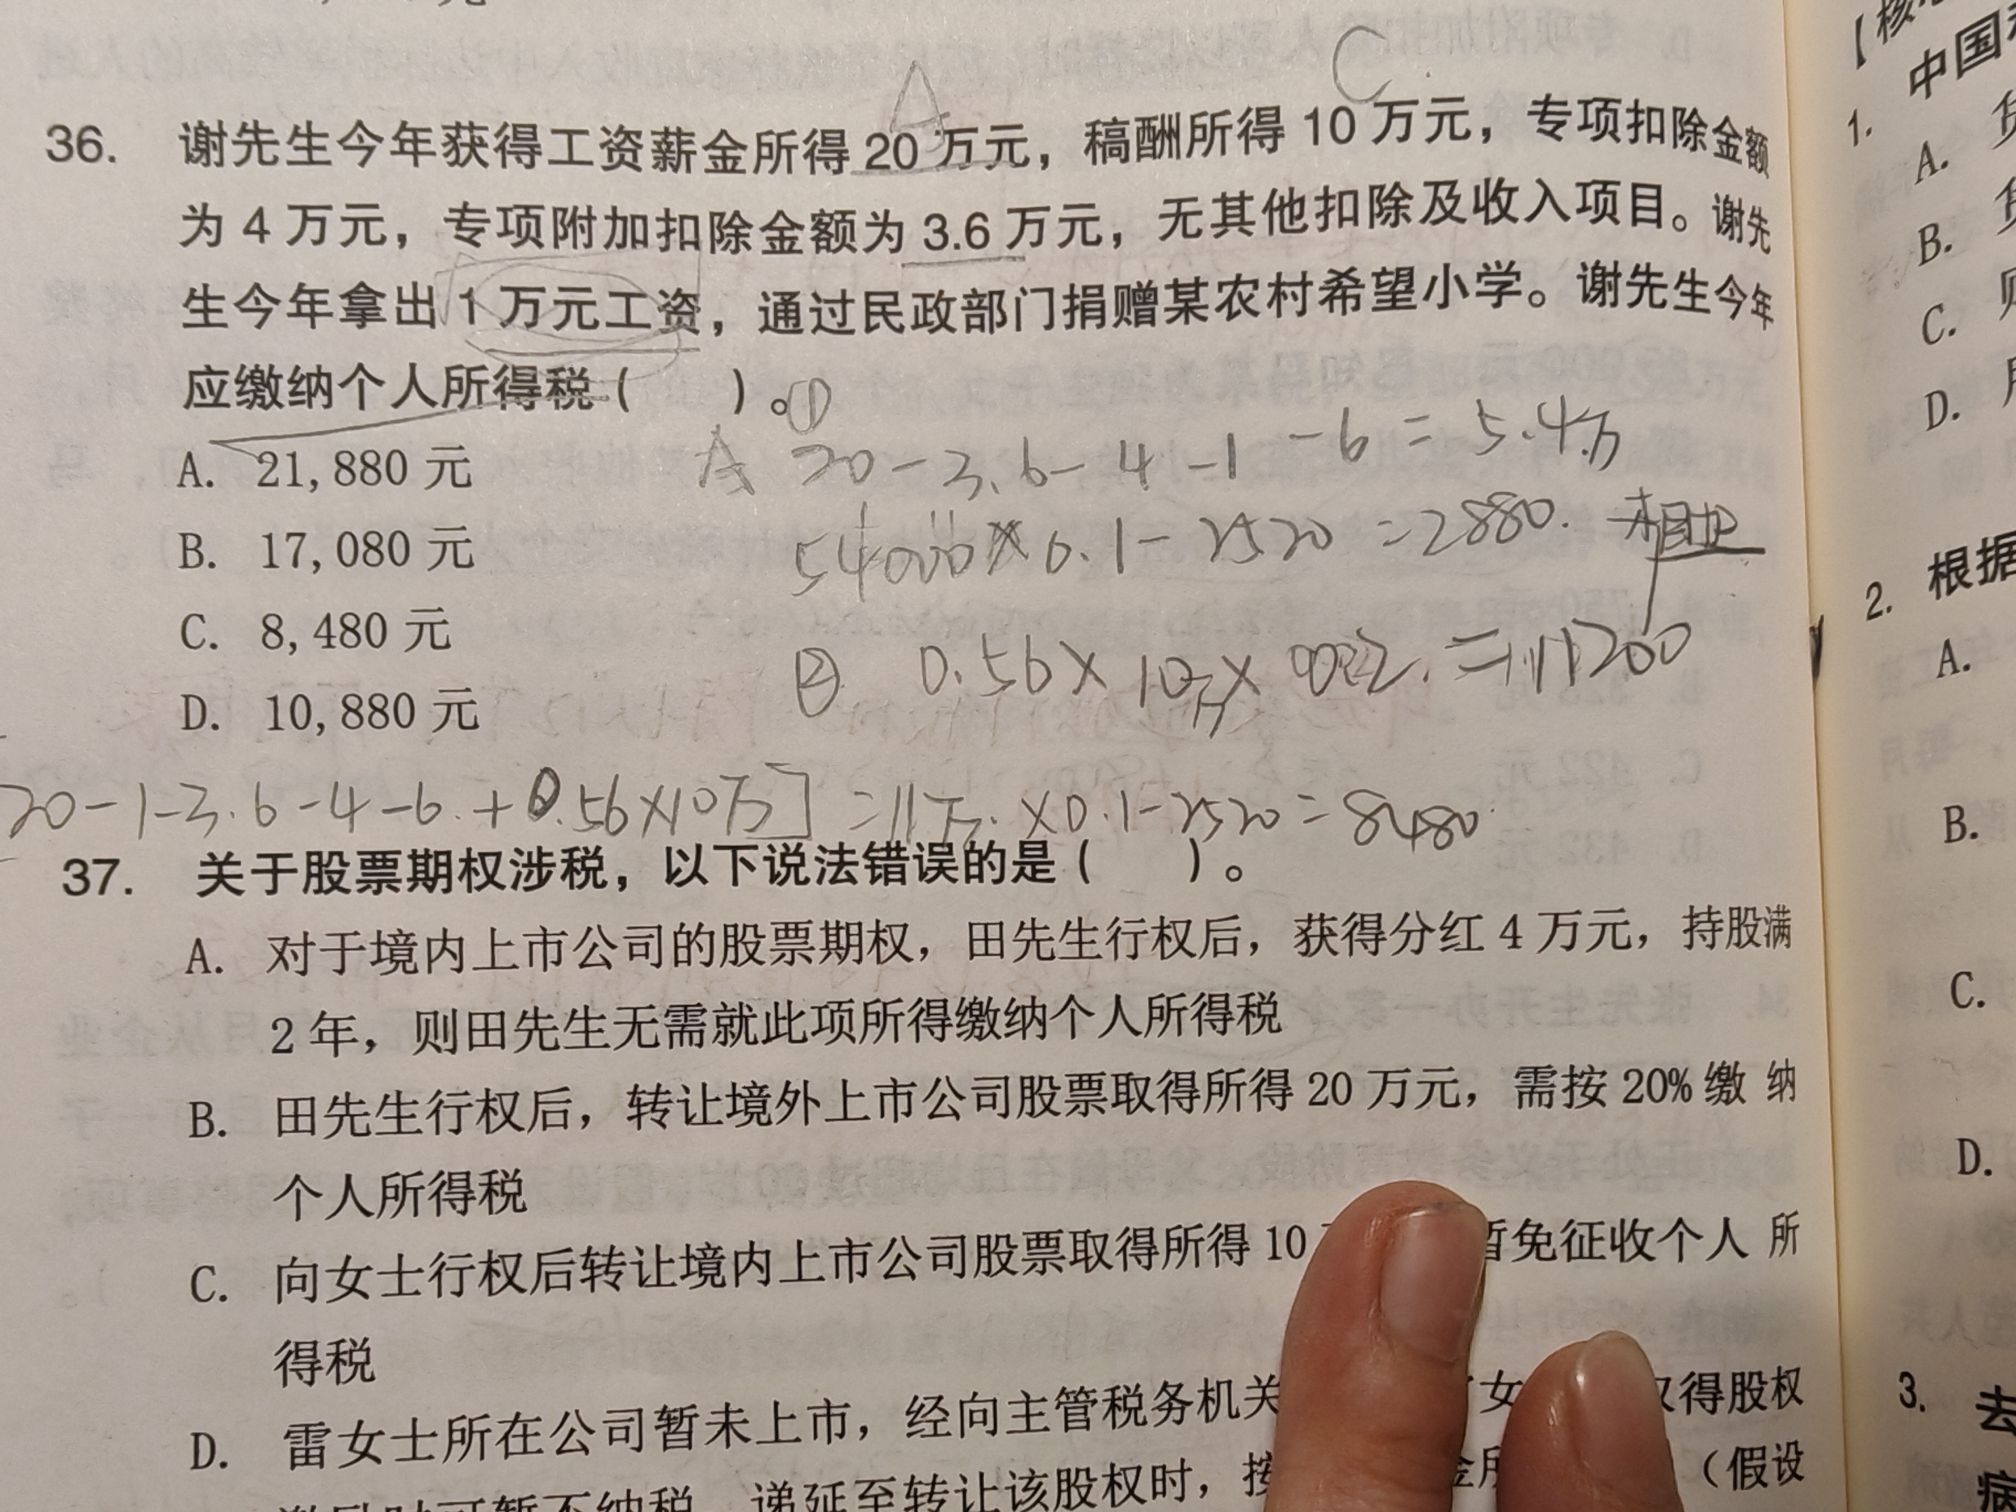 A
C
36. 谢先生今年获得工资薪金所得 20 万元，稿酬所得 10 万元，专项扣除金额
为 4 万元，专项附加扣除金额为 3.6 万元，无其他扣除及收入项目。谢先
生今年拿出 1 万元工资，通过民政部门捐赠某农村希望小学。谢先生今年
应缴纳个人所得税（    ）。
①
A. 21,880 元
A 20-3.6-4-1-6=5.4万
B. 17,080 元
54000×0.1-2520=2880.
C. 8,480 元
② 0.56×10万× =11200
D. 10,880 元
20-1-3.6-4-6.+0.56×10万]=11万.×0.1-2520=8480
37. 关于股票期权涉税，以下说法错误的是（    ）。
A. 对于境内上市公司的股票期权，田先生行权后，获得分红 4 万元，持股满
2 年，则田先生无需就此项所得缴纳个人所得税
B. 田先生行权后，转让境外上市公司股票取得所得 20 万元，需按 20% 缴 纳
个人所得税
C. 向女士行权后转让境内上市公司股票取得所得 10 暂免征收个人 所
得税
D. 雷女士所在公司暂未上市，经向主管税务机关 女 得股权
递延至转让该股权时，按 （假设
【核
中国
1.
A.
B.
C.
D.
2. 根据
A.
B.
C.
D.
3.